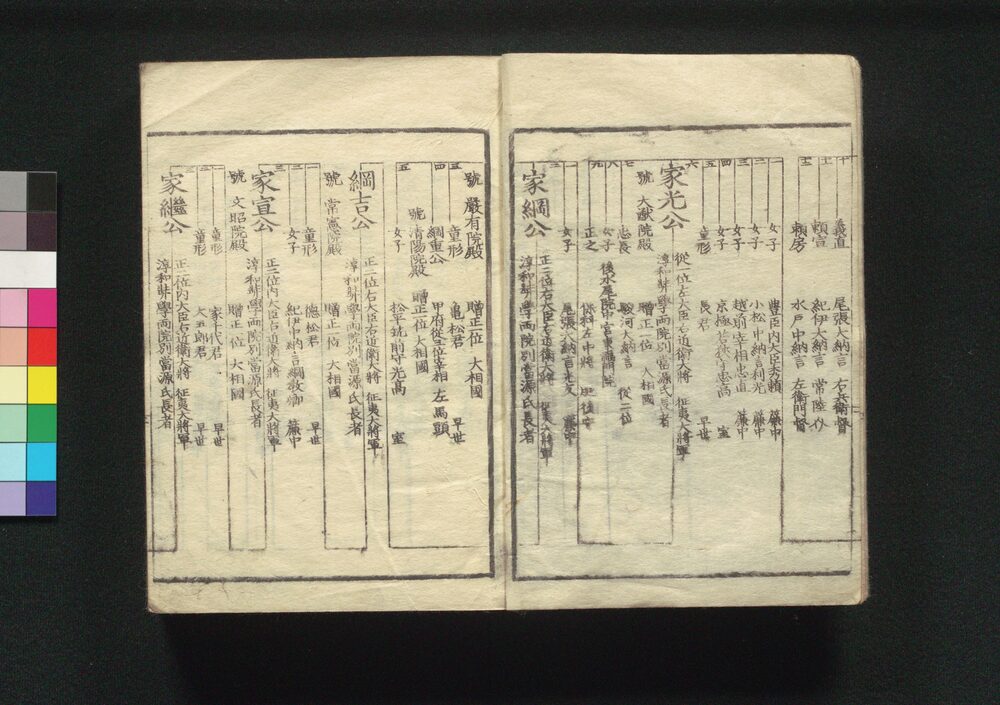 十 義直 尾張大納言 右兵衛督
十一 頼宣 紀伊大納言 常陸介
十二 頼房 水戸中納言 左衛門督
一 女子 豊臣内大臣秀頼 簾中
二 女子 小松中納言利光 簾中
三 女子 越前宰相忠直 簾中
四 女子 京極若狭守忠高 室
五 童形 長君 早世
六 家光公 従一位左大臣右近衛大将 征夷大将軍
淳和奨學両院別當源氏長者
號 大猷院殿 贈正一位 大相國
七 忠長 駿河大納言 従二位
八 女子 後水尾院中宮東福門院
九 正之 保科左中将 肥後守
一 女子 尾張大納言光友 簾中
二 家綱公 正二位右大臣右近衛大将 征夷大将軍
淳和奨學両院別當源氏長者
號 嚴有院殿 贈正一位 大相國
三 童形 亀松君 早世
四 綱重公 甲府従三位宰相 左馬頭
號 清陽院殿 贈正一位大相國
五 女子 松平 光高 室
綱吉公 正二位右大臣右近衛大将 征夷大将軍
淳和奨學両院別當源氏長者
號 常憲院殿 贈正一位 大相國
一 童形 徳松君 早世
二 女子 紀伊中納言綱教卿 簾中
三 家宣公 正二位内大臣右近衛大将 征夷大将軍
淳和奨學両院別當源氏長者
號 文昭院殿 贈正一位 大相國
一 童形 家千代君 早世
二 童形 大五郎君 早世
三 家繼公 正二位内大臣右近衛大将 征夷大将軍
淳和奨學両院別當源氏長者